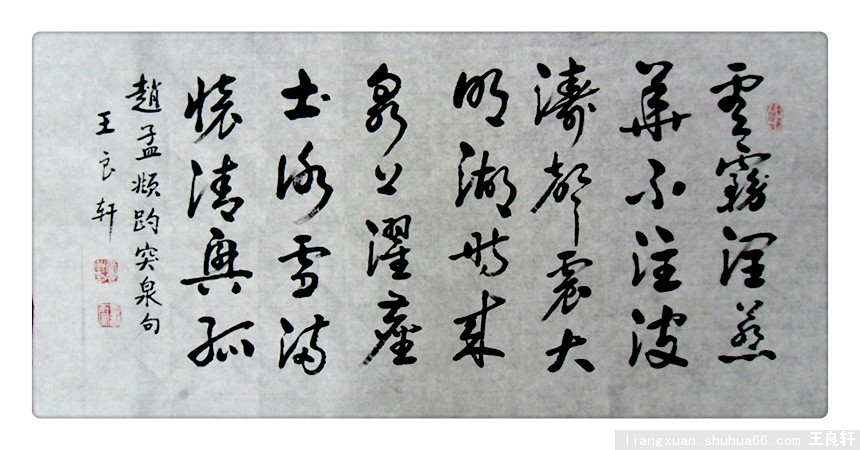 雲霧润蒸
華不注波
濤聲震大
明湖時来
泉上濯塵
土冰雪满
懷清興孤
趙孟頫趵突泉句
王良轩
liangxuan.shuhua66.com 王良轩